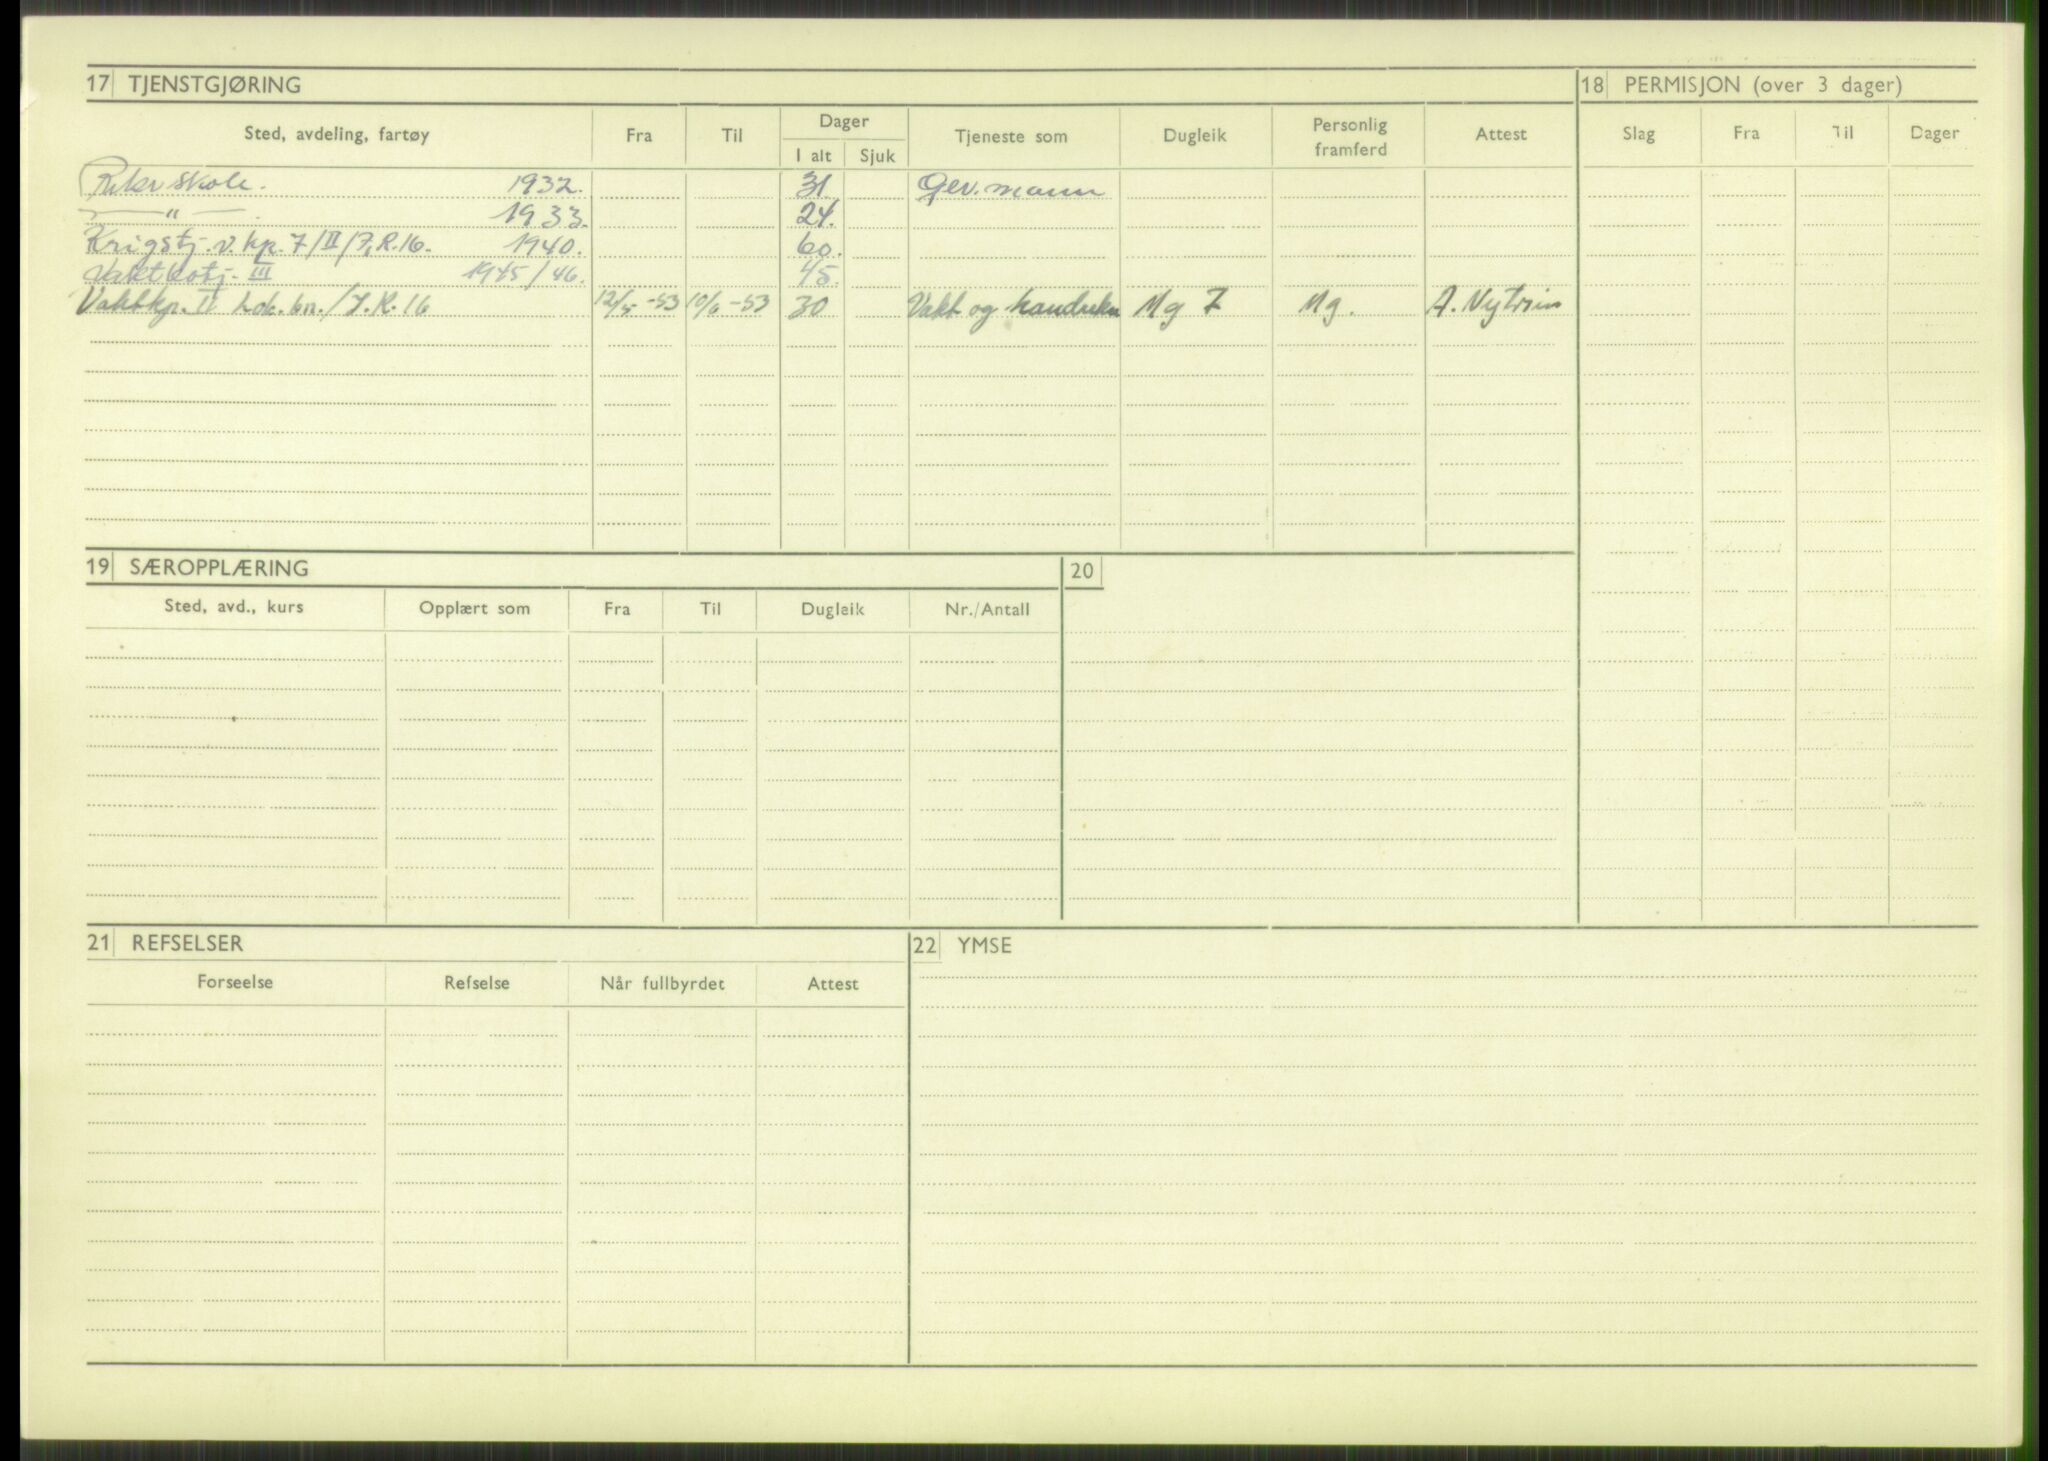 17 TJENSTGJØRING
18 PERMISJON (over 3 dager)
Sted, avdeling, fartøy Fra Til Dager Tjeneste som Dugleik Personlig framferd Attest Slag Fra Til Dager
I alt Sjuk
Rekr skole. 1932. 31 Gev. mann
" 1933. 24.
Krigstj. v. kp. 7/II/I.R.16. 1940. 60.
III 1945/46. 45.
Vaktkp. II Lok. bn./I.R.16 12/5-53 10/6-53 30 Vakt og Mg Mg. A.
19 SÆROPPLÆRING
20
Sted, avd., kurs Opplært som Fra Til Dugleik Nr./Antall
21 REFSELSER
22 YMSE
Forseelse Refselse Når fullbyrdet Attest